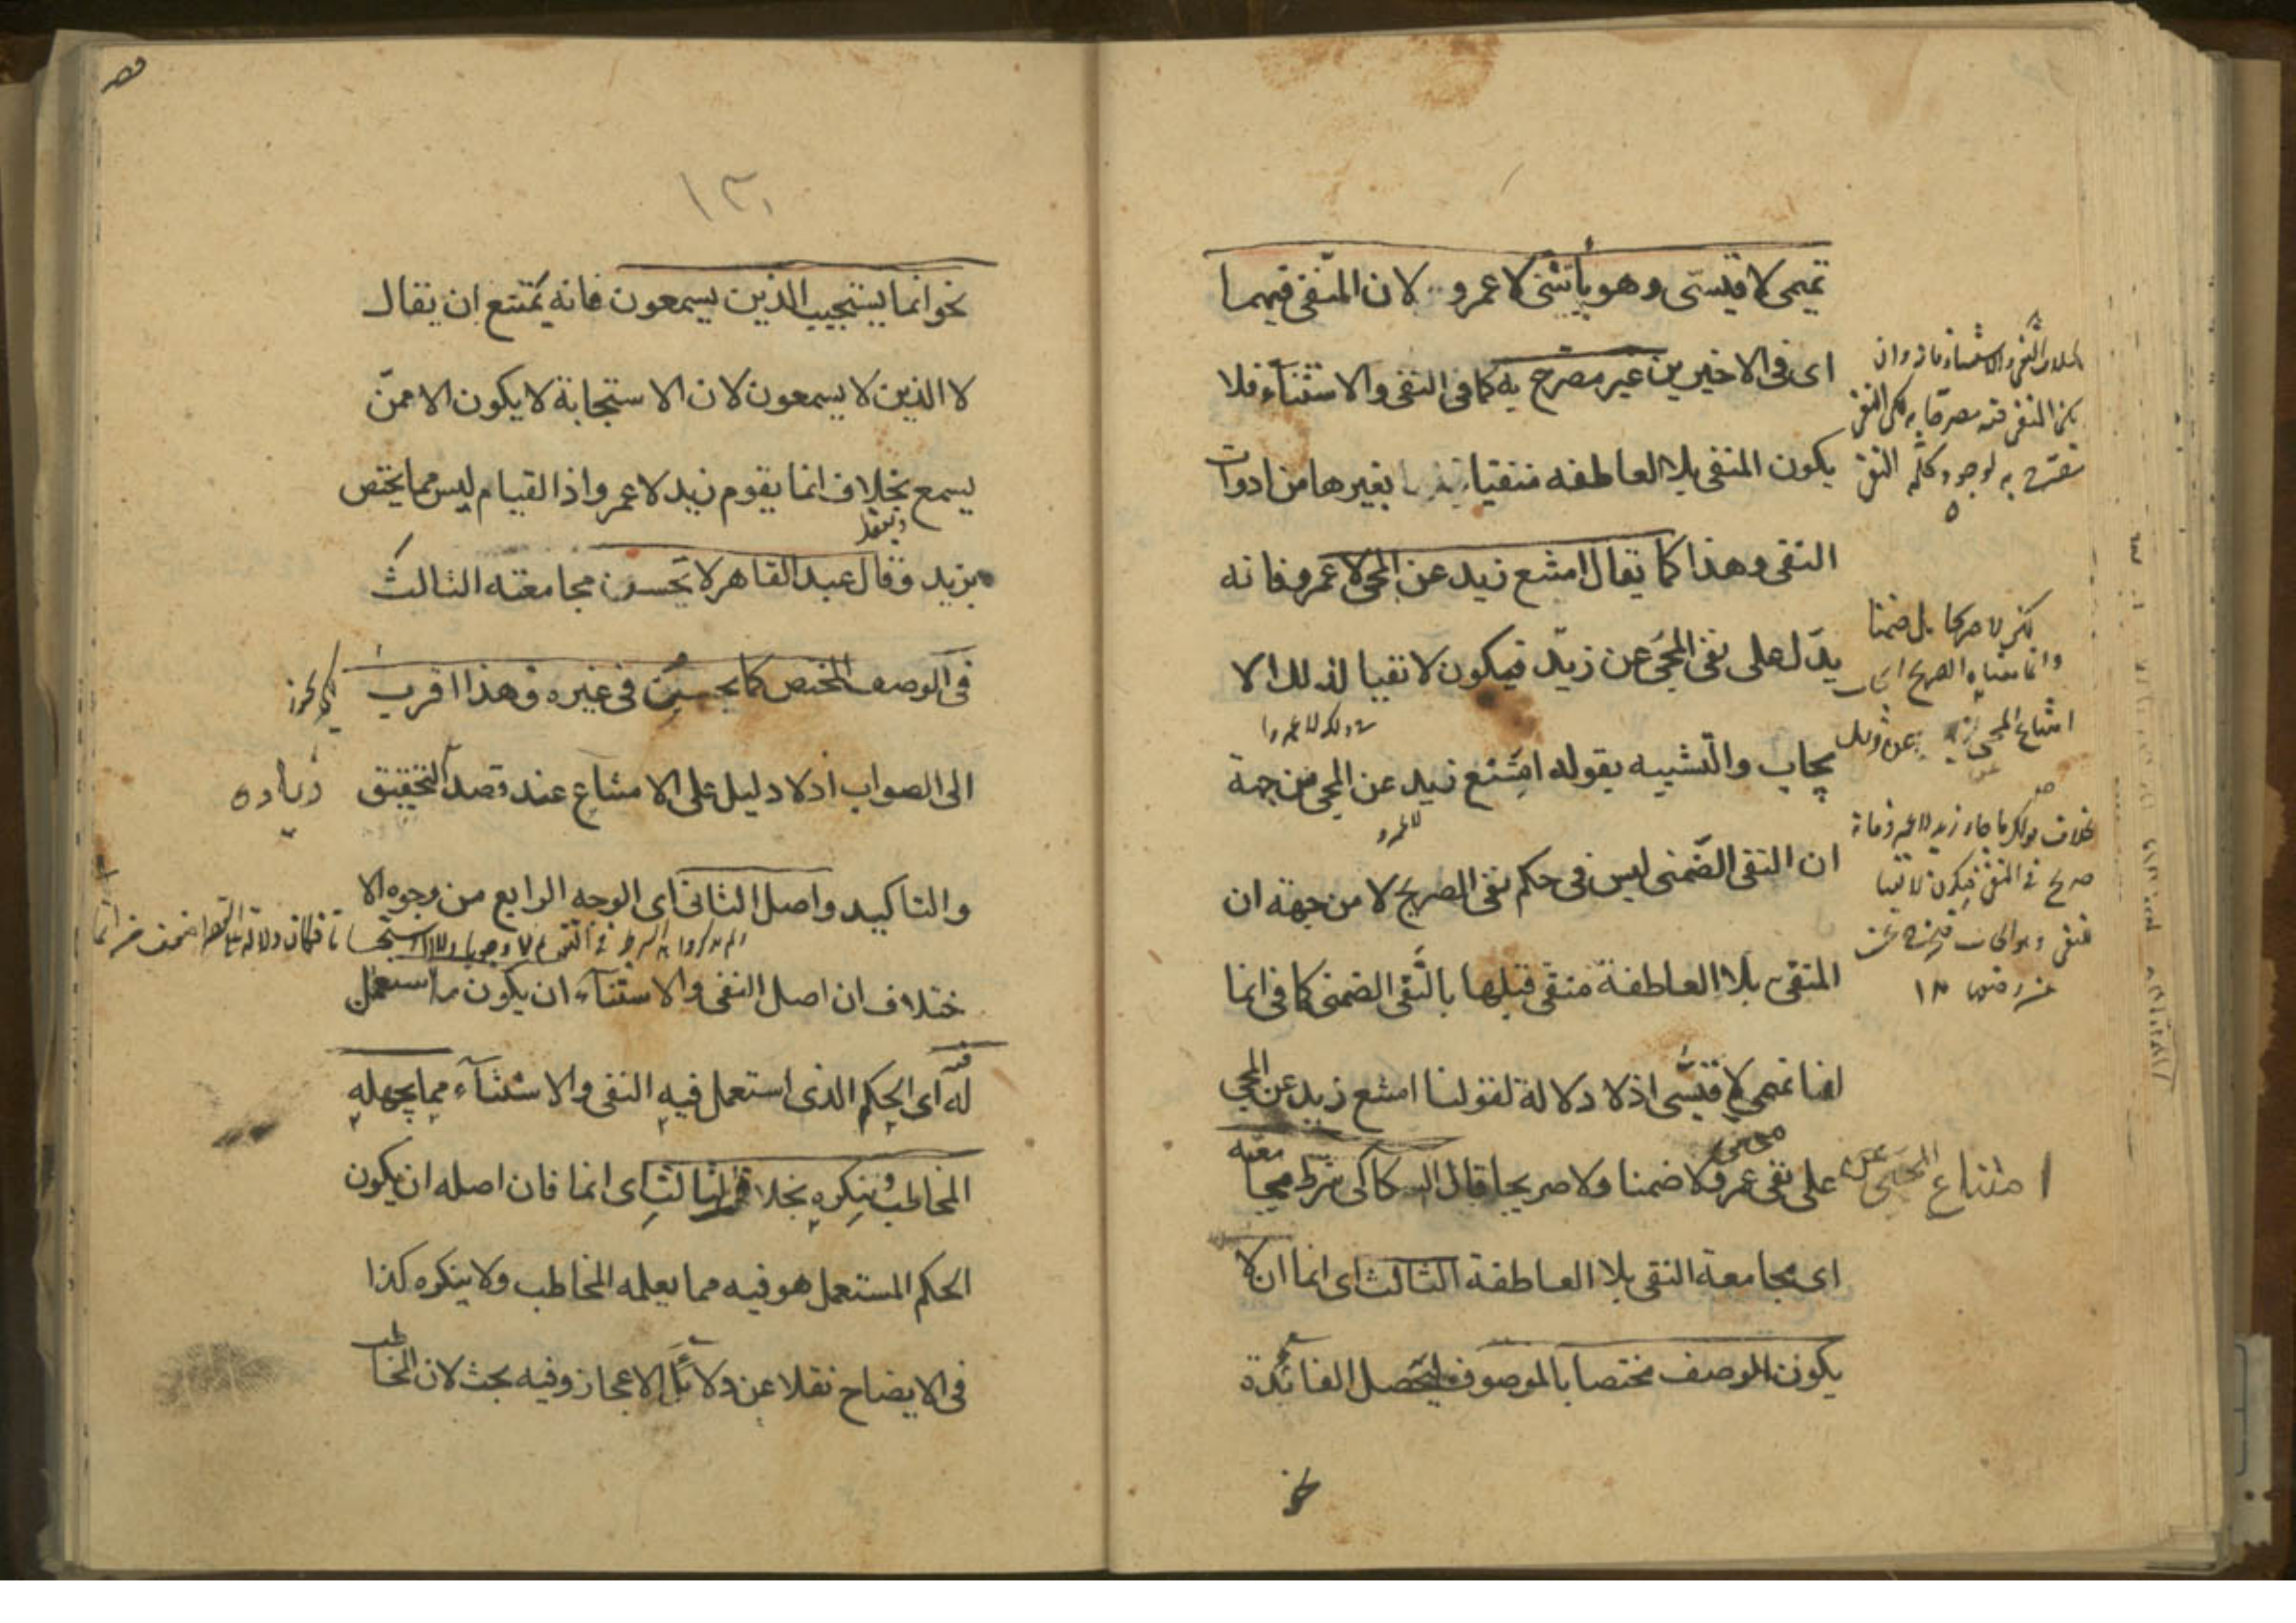 تميمى لا قيسى وهو يأتينى لا عمرو لان المنفى فيهما
اى فى الاخيرين غير مصرح به كما فى النفى والاستثناء فلا
يكون المنفى بلا العاطفه منفيا بغيرها من ادوات
النفى وهذا كما يقال امتنع زيد عن المجى لا عمرو فانه
يدل على نفى المجئ عن زيد فيكون لا نفيا لذلك الا
يجاب والتشبيه بقوله امتنع زيد عن المجى من جهة
ان النفى الضمنى ليس فى حكم نفى الصريح لا من جهة ان
المنفى بلا العاطفة منفى قبلها بالنفى الضمنى كما فى انما
انا تميمى لا قيسى اذ لا دلالة لقولنا امتنع زيد عن المجى
على نفى مجى عمرو لا ضمنا ولا صريحا قال السكاكى شرط مجا
معته
اى مجامعة النفى بلا العاطفة الثالث اى انما ان لا
يكون الوصف مختصا بالموصوف ليحصل الفائدة
نحو
امتناع المجى عن
لكن لا صريحا بل ضمنا
وانما معناه الصريح ايجاب
امتناع المجى عن زيد
بخلاف قولك ما جاء زيد لا عمرو فانه
صريح فى النفى فيكون لا نفيا
١٣١
نحو انما يستجيب الذين يسمعون فانه يمتنع ان يقال
لا الذين لا يسمعون لان الاستجابة لا يكون الا ممن
يسمع بخلاف انما يقوم زيد لا عمرو اذ القيام ليس مما يختص
بزيد وقال عبد القاهر لا تحسن مجامعته الثالث
فى الوصف المختص كما يحسن فى غيره وهذا اقرب
الى الصواب اذ لا دليل على الامتناع عند قصد التحقيق
زياده
والتاكيد واصل الثانى اى الوجه الرابع من وجوه الا
ختلاف ان اصل النفى والاستثناء ان يكون ما استعمل
له اى الحكم الذى استعمل فيه النفى والاستثناء مما يجهله
المخاطب وينكره بخلاف الثالث اى انما فان اصله ان يكون
الحكم المستعمل هو فيه مما يعلمه المخاطب ولا ينكره كذا
فى الايضاح نقلا عن دلائل الاعجاز وفيه بحث لان المخاطب